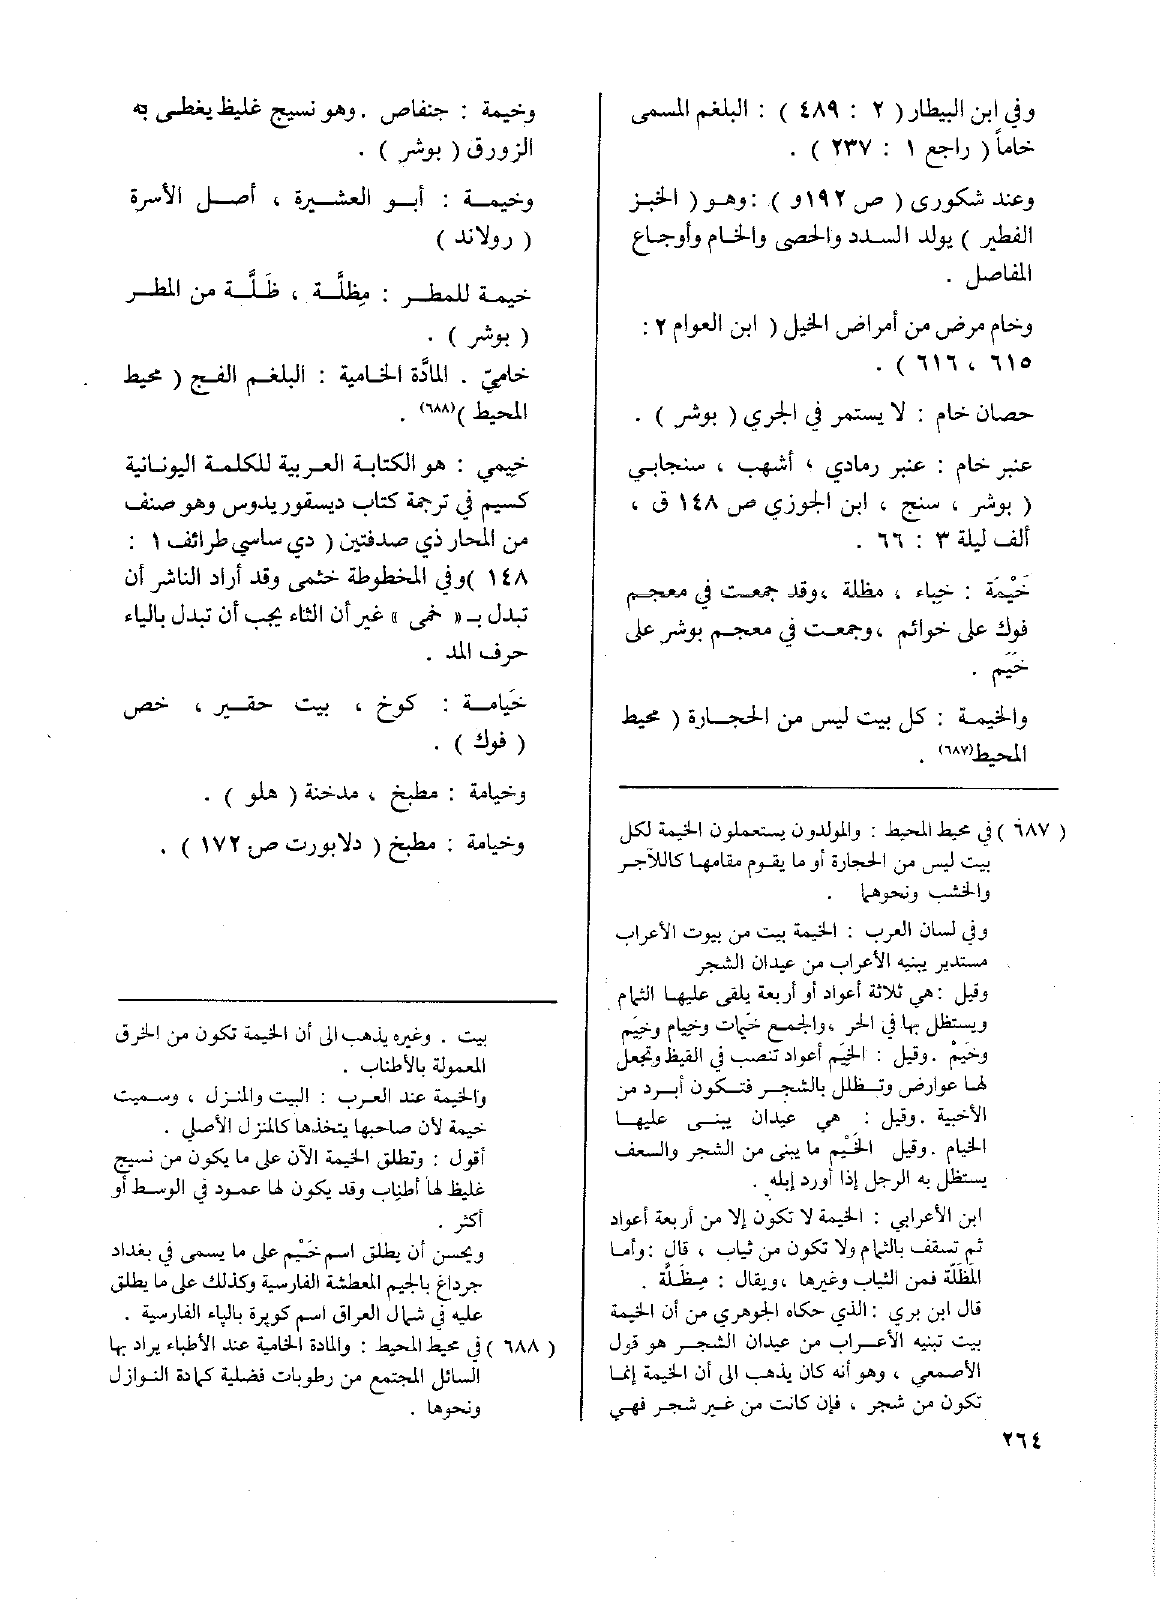 وفي ابن البيطار ( ٢ : ٤٨٩ ) : البلغم المسمى
خاماً ( راجع ١ : ٢٣٧ ) .
وعند شكورى ( ص ١٩٢و ) : وهـو ( الخبـز
الفطير ) يولد السـدد والحصى والخـام وأوجـاع
المفاصل .
وخام مرض من أمراض الخيل ( ابن العوام ٢ :
٦١٥ ، ٦١٦ ) .
حصان خام : لا يستمر في الجري ( بوشر ) .
عنبر خام : عنبر رمادي ، أشهب ، سنجابي
( بوشر ، سنج ، ابن الجوزي ص ١٤٨ ق ،
ألف ليلة ٣ : ٦٦ .
خَيْمَة : خباء ، مظلة ، وقد جمعت في معجم
فوك على خوائم ، وجمعت في معجم بوشر على
خَيَم .
والخيمـة : كل بيت ليس من الحجـارة ( محيط
المحيط(٦٨٧) .
( ٦٨٧ ) في محيط المحيط : والمولدون يستعملون الخيمة لكل
بيت ليس من الحجارة أو ما يقوم مقامها كالآجر
والخشب ونحوهما .
وفي لسان العرب : الخيمة بيت من بيوت الأعراب
مستدير يبنيه الأعراب من عيدان الشجر
وقيل : هي ثلاثة أعواد أو أربعة يلقى عليها الثمام
ويستظل بها في الحر ، والجمع خَيْمات وخيام وخِيَم
وخَيْم . وقيل : الخَيْم أعواد تنصب في القيظ وتجعل
لها عوارض وتـظلل بالشجـر فتـكون أبـرد من
الأخبية . وقيل : هي عيدان يبنـى عليهـا
الخيام . وقيل الخَيْم ما يبنى من الشجر والسعف
يستظل به الرجل إذا أورد إبله .
ابن الأعرابي : الخيمة لا تكون إلا من أربعة أعواد
ثم تسقف بالثمام ولا تكون من ثياب ، قال : وأما
المَظَلّة فمن الثياب وغيرها ، ويقال : مِـظَلَّة .
قال ابن بري : الذي حكاه الجوهري من أن الخيمة
بيت تبنيه الأعـراب من عيدان الشجـر هو قول
الأصمعي ، وهو أنه كان يذهب الى أن الخيمة إنما
تكون من شجر ، فإن كانت من غير شجر فهي
وخيمة : جنفاص . وهو نسيج غليظ يغطى به
الزورق ( بوشر ) .
وخيمـة : أبـو العشيـرة ، أصـل الأسرة
( رولاند )
خيمـة للمطـر : مِظلَّـة ، ظَلَّـة من المطـر
( بوشر ) .
خاميّ . المادَّة الخـامية : البلغـم الفـج ( محيط
المحيط )(٦٨٨) .
خيمي : هو الكتابة العربية للكلمة اليونانية
كسيم في ترجمة كتاب ديسقوريدوس وهو صنف
من المحار ذي صدفتين ( دي ساسي طرائف ١ :
١٤٨ ) وفي المخطوطة خثمى وقد أراد الناشر أن
تبدل بـ « خمى » غير أن الثاء يجب أن تبدل بالياء
حرف المد .
خَيَامـة : كوخ ، بيت حقـير ، خص
( فوك ) .
وخيامة : مطبخ ، مدخنة ( هلو ) .
وخيامة : مطبخ ( دلابورت ص ١٧٢ ) .
بيت . وغيره يذهب الى أن الخيمة تكون من الخرق
المعمولة بالأطناب .
والخيمة عند العـرب : البيت والمنـزل ، وسـميت
خيمة لأن صاحبها يتخذها كالمنزل الأصلي .
أقول : وتطلق الخيمة الآن على ما يكون من نسيج
غليظ لها أطناب وقد يكون لها عمود في الوسط أو
أكثر .
ويحسن أن يطلق اسم خَيْم على ما يسمى في بغداد
جرداغ بالجيم المعطشة الفارسية وكذلك على ما يطلق
عليه في شمال العراق اسم كوپرة بالياء الفارسية .
( ٦٨٨ ) في محيط المحيط : والمادة الخامية عند الأطباء يراد بها
السائل المجتمع من رطوبات فضلية كمادة النـوازل
ونحوها .
٢٦٤